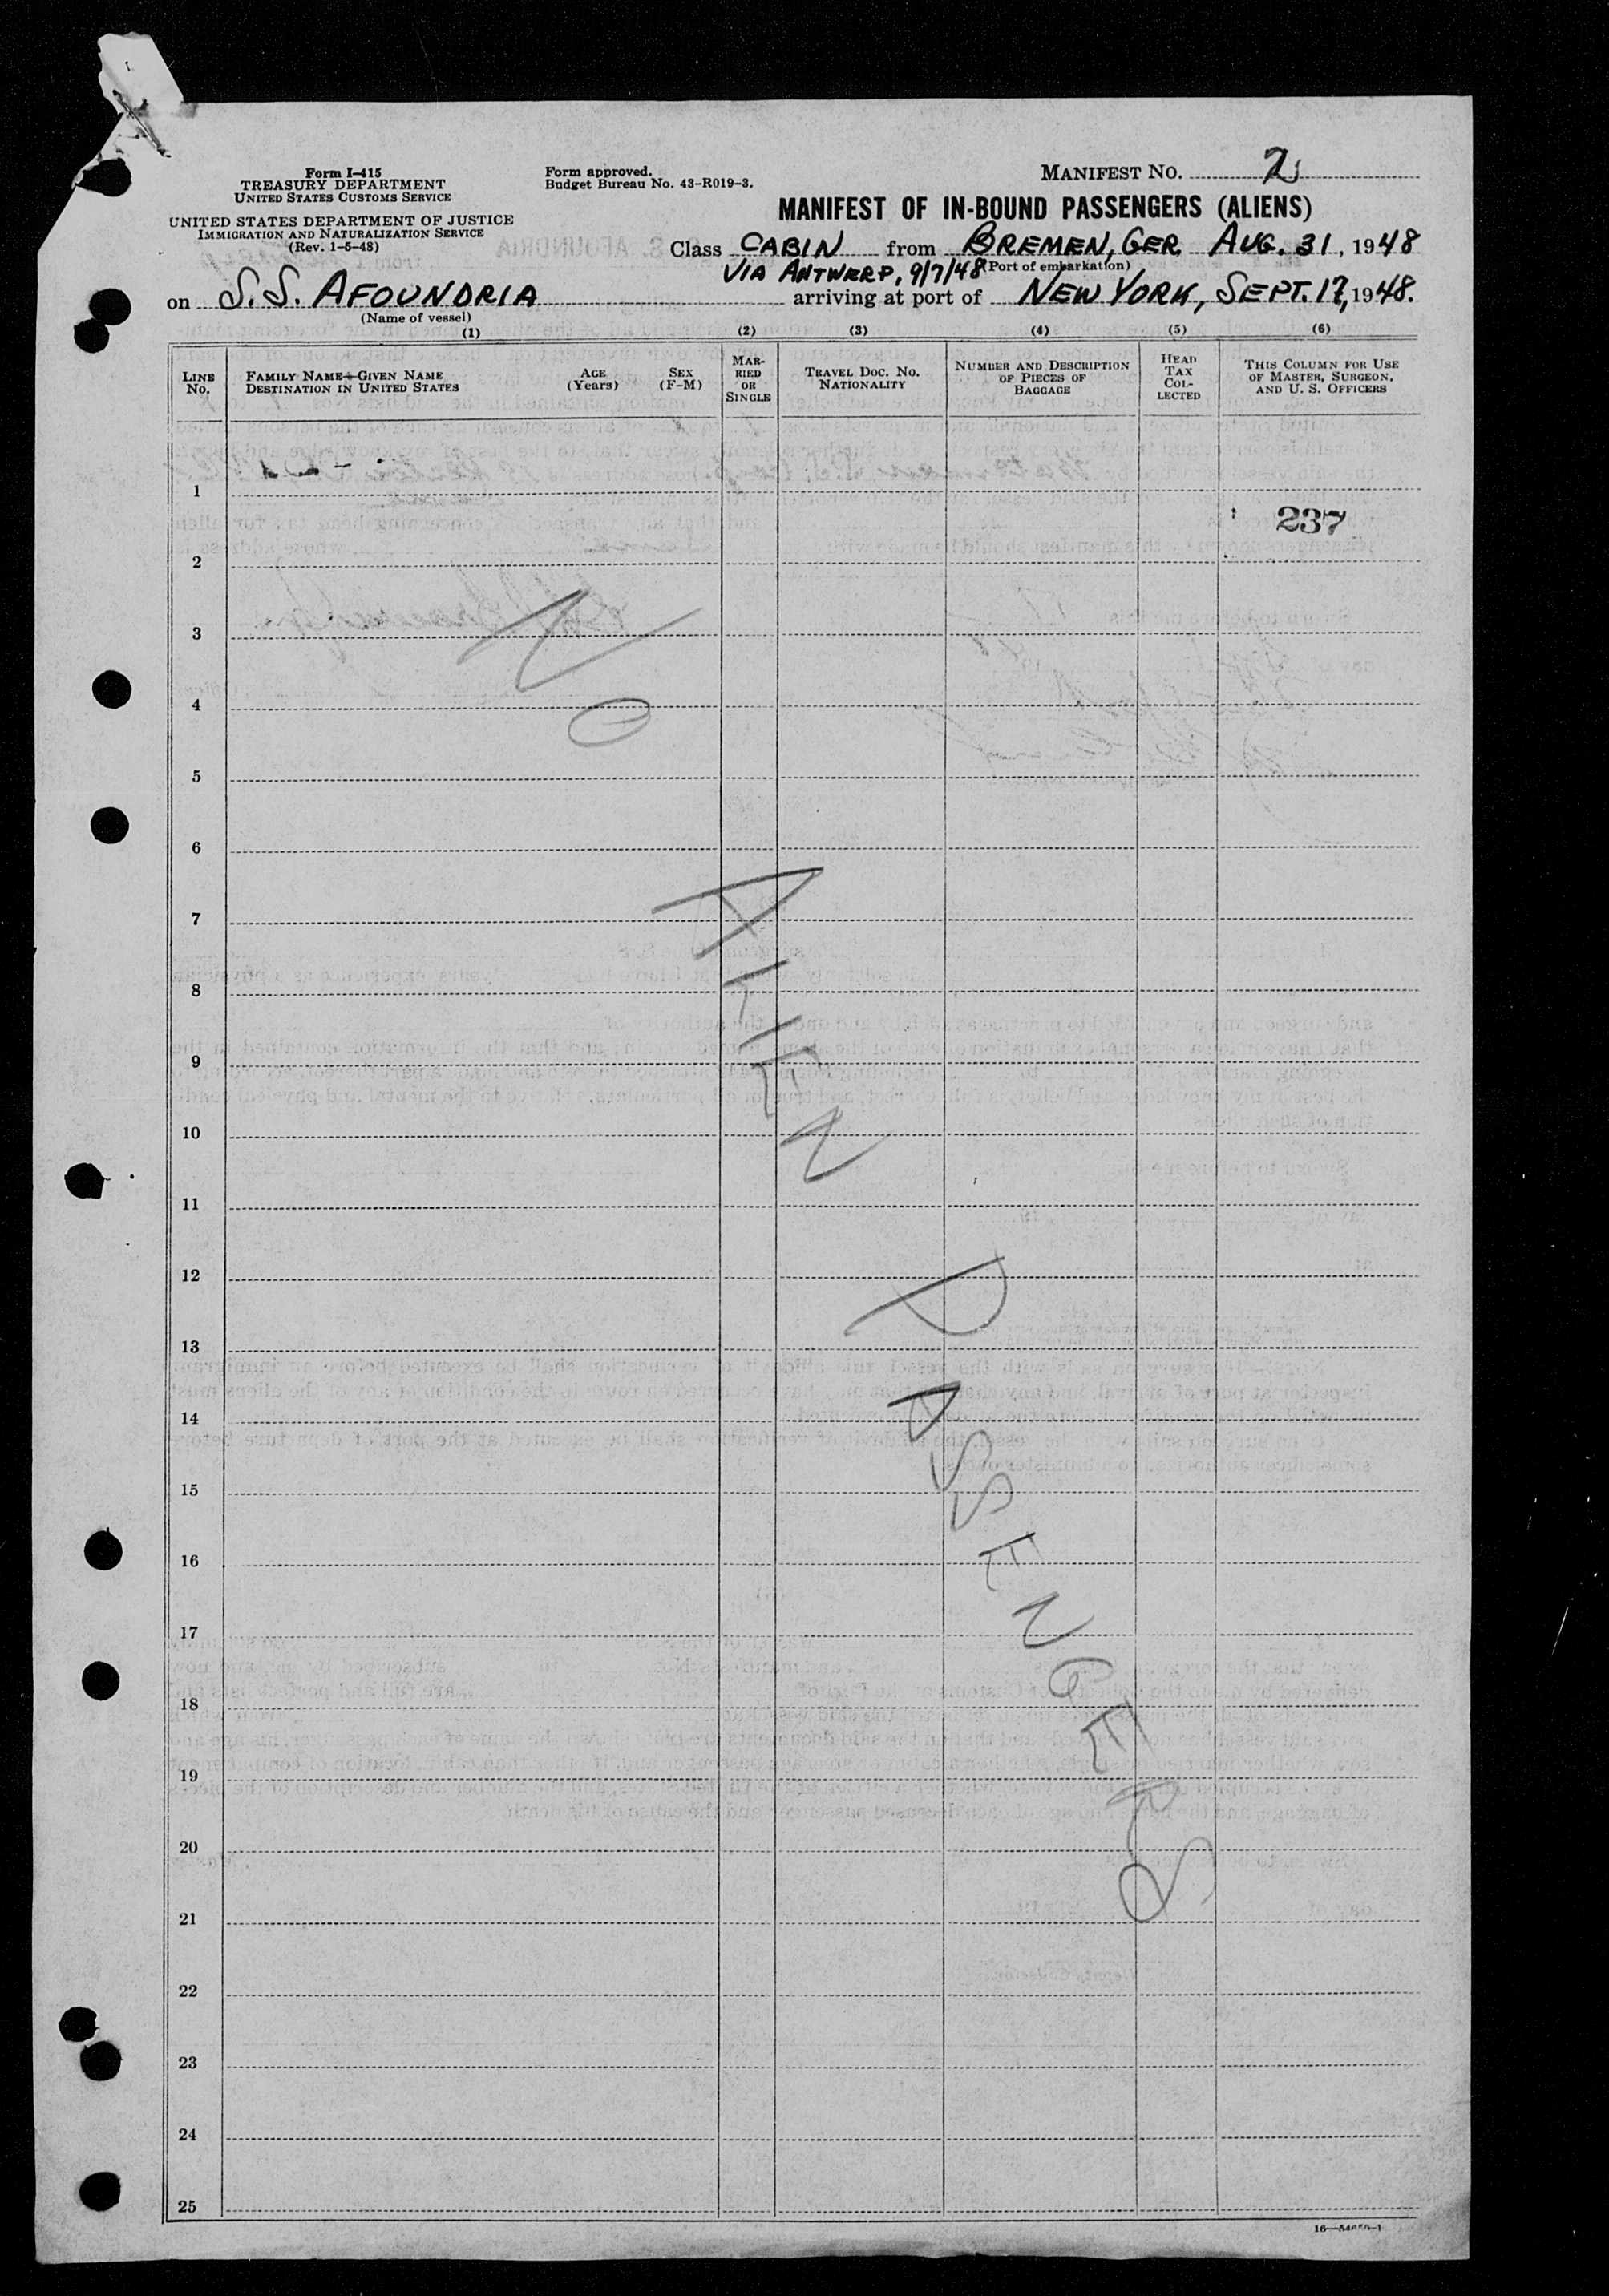 Form I-415
TREASURY DEPARTMENT
UNITED STATES CUSTOMS SERVICE
UNITED STATES DEPARTMENT OF JUSTICE
IMMIGRATION AND NATURALIZATION SERVICE
(Rev. 1-5-48)
Form approved.
Budget Bureau No. 43-R019-3.
MANIFEST NO. 2
MANIFEST OF IN-BOUND PASSENGERS (ALIENS)
Class CABIN from BREMEN, GER. AUG. 31, 1948
VIA ANTWERP, 9/7/48 (Port of embarkation)
on S.S. AFOUNDRIA arriving at port of NEW YORK, SEPT. 17, 1948.
(Name of vessel)
(1) (2) (3) (4) (5) (6)
LINE No.
FAMILY NAME—GIVEN NAME
DESTINATION IN UNITED STATES
AGE (Years)
SEX (F-M)
MARRIED OR SINGLE
TRAVEL DOC. NO.
NATIONALITY
NUMBER AND DESCRIPTION OF PIECES OF BAGGAGE
HEAD TAX COLLECTED
THIS COLUMN FOR USE OF MASTER, SURGEON, AND U. S. OFFICERS
1
237
2
3
4
5
6
7
8
9
10
11
12
13
14
15
16
17
18
19
20
21
22
23
24
25
NO ALIEN PASSENGERS